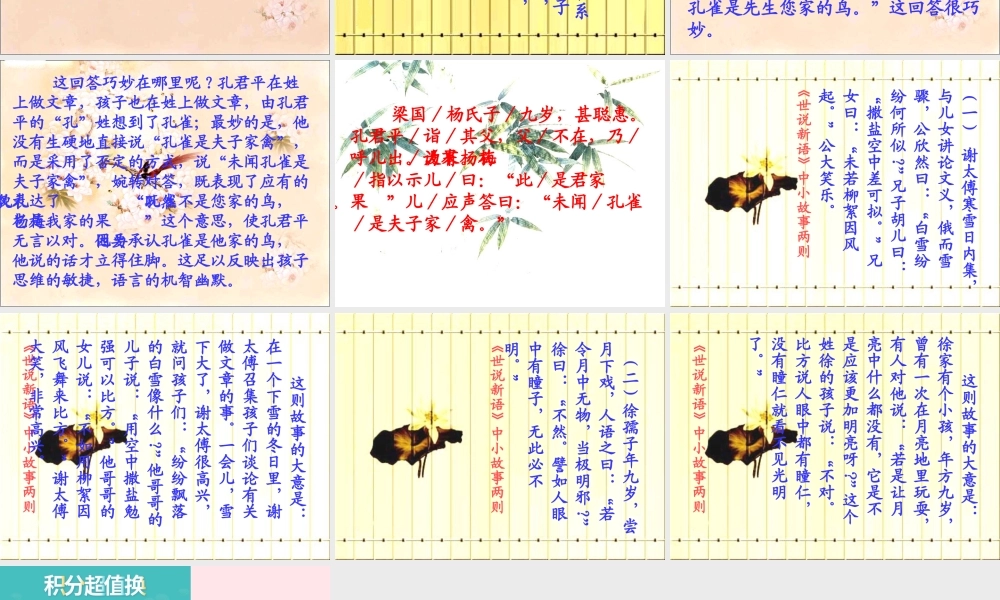 ，，子系
孔雀是先生您家的鸟。”这回答很巧
妙。
这回答巧妙在哪里呢？孔君平在姓
上做文章，孩子也在姓上做文章，由孔君
平的“孔”姓想到了孔雀；最妙的是，他
没有生硬地直接说“孔雀是夫子家禽”，
而是采用了否定的方式，说“未闻孔雀是
夫子家禽”，婉转对答，既表现了应有的
礼貌，又表达了
不是您家的鸟，
是我家的果 ”这个意思，使孔君平
无言以对。因为
承认孔雀是他家的鸟，
他说的话才立得住脚。这足以反映出孩子
思维的敏捷，语言的机智幽默。
梁国／杨氏子／九岁，甚聪惠。
孔君平／诣／其父，父／不在，乃／
呼儿出。
／指以示儿／曰：“此／是君家
果 ”儿／应声答曰：“未闻／孔雀
／是夫子家／禽。”
（一） 谢太傅寒雪日内集，
与儿女讲论文义，俄而雪
骤，公欣然曰：“白雪纷
纷何所似？”兄子胡儿曰：
“撒盐空中差可拟。”兄
女曰：“未若柳絮因风
起。”公大笑乐。
《世说新语》中小故事两则
这则故事的大意是：
在一个下雪的冬日里，谢
太傅召集孩子们谈论有关
做文章的事。一会儿，雪
下大了，谢太傅很高兴，
就问孩子们：“纷纷飘落
的白雪像什么？”他哥哥的
儿子说：“用空中撒盐勉
强可以比方。”他哥哥的
女儿说：“不如用柳絮因
风飞舞来比方。”谢太傅
大笑，非常高兴。
《世说新语》中小故事两则
（二）徐孺子年九岁，尝
月下戏，人语之曰：“若
令月中无物，当极明邪？”
徐曰：“不然。譬如人眼
中有瞳子，无此必不
明。”
《世说新语》中小故事两则
这则故事的大意是：
徐家有个小孩，年方九岁，
曾有一次在月亮地里玩耍，
有人对他说：“若是让月
亮中什么都没有，它是不
是应该更加明亮呀？”这个
姓徐的孩子说：“不对。
比方说人眼中都有瞳仁，
没有瞳仁就看不见光明
了。”
《世说新语》中小故事两则
积分超值换